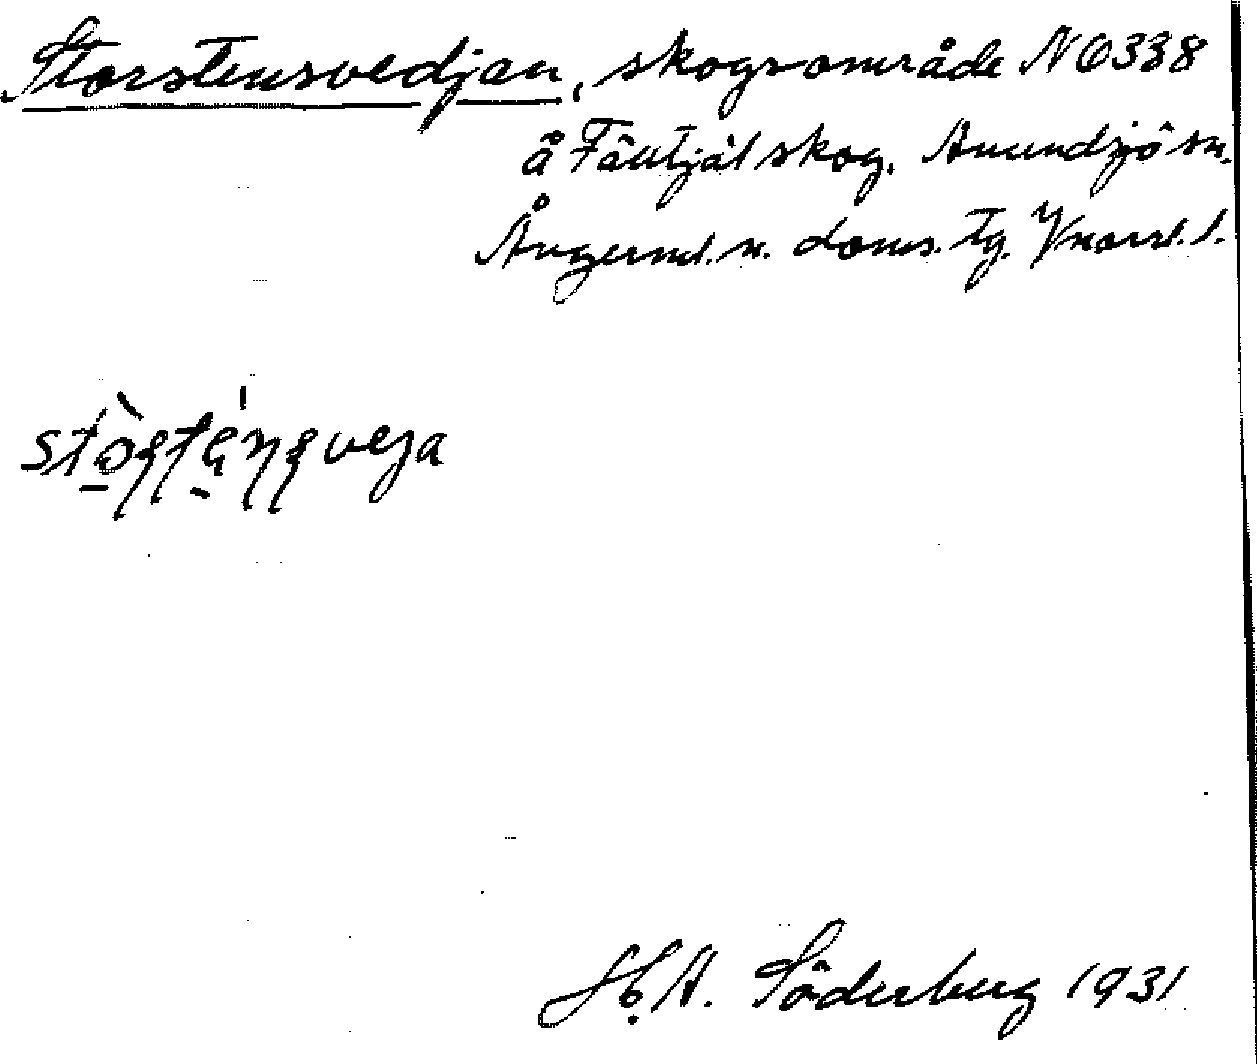 Storstensvedjan, skogsområde NO 338
å Fälltjäl skog. Anundsjö sn.
Ångerml. n. doms. tg. Vnorrl. l.
H. A. Söderberg 1931